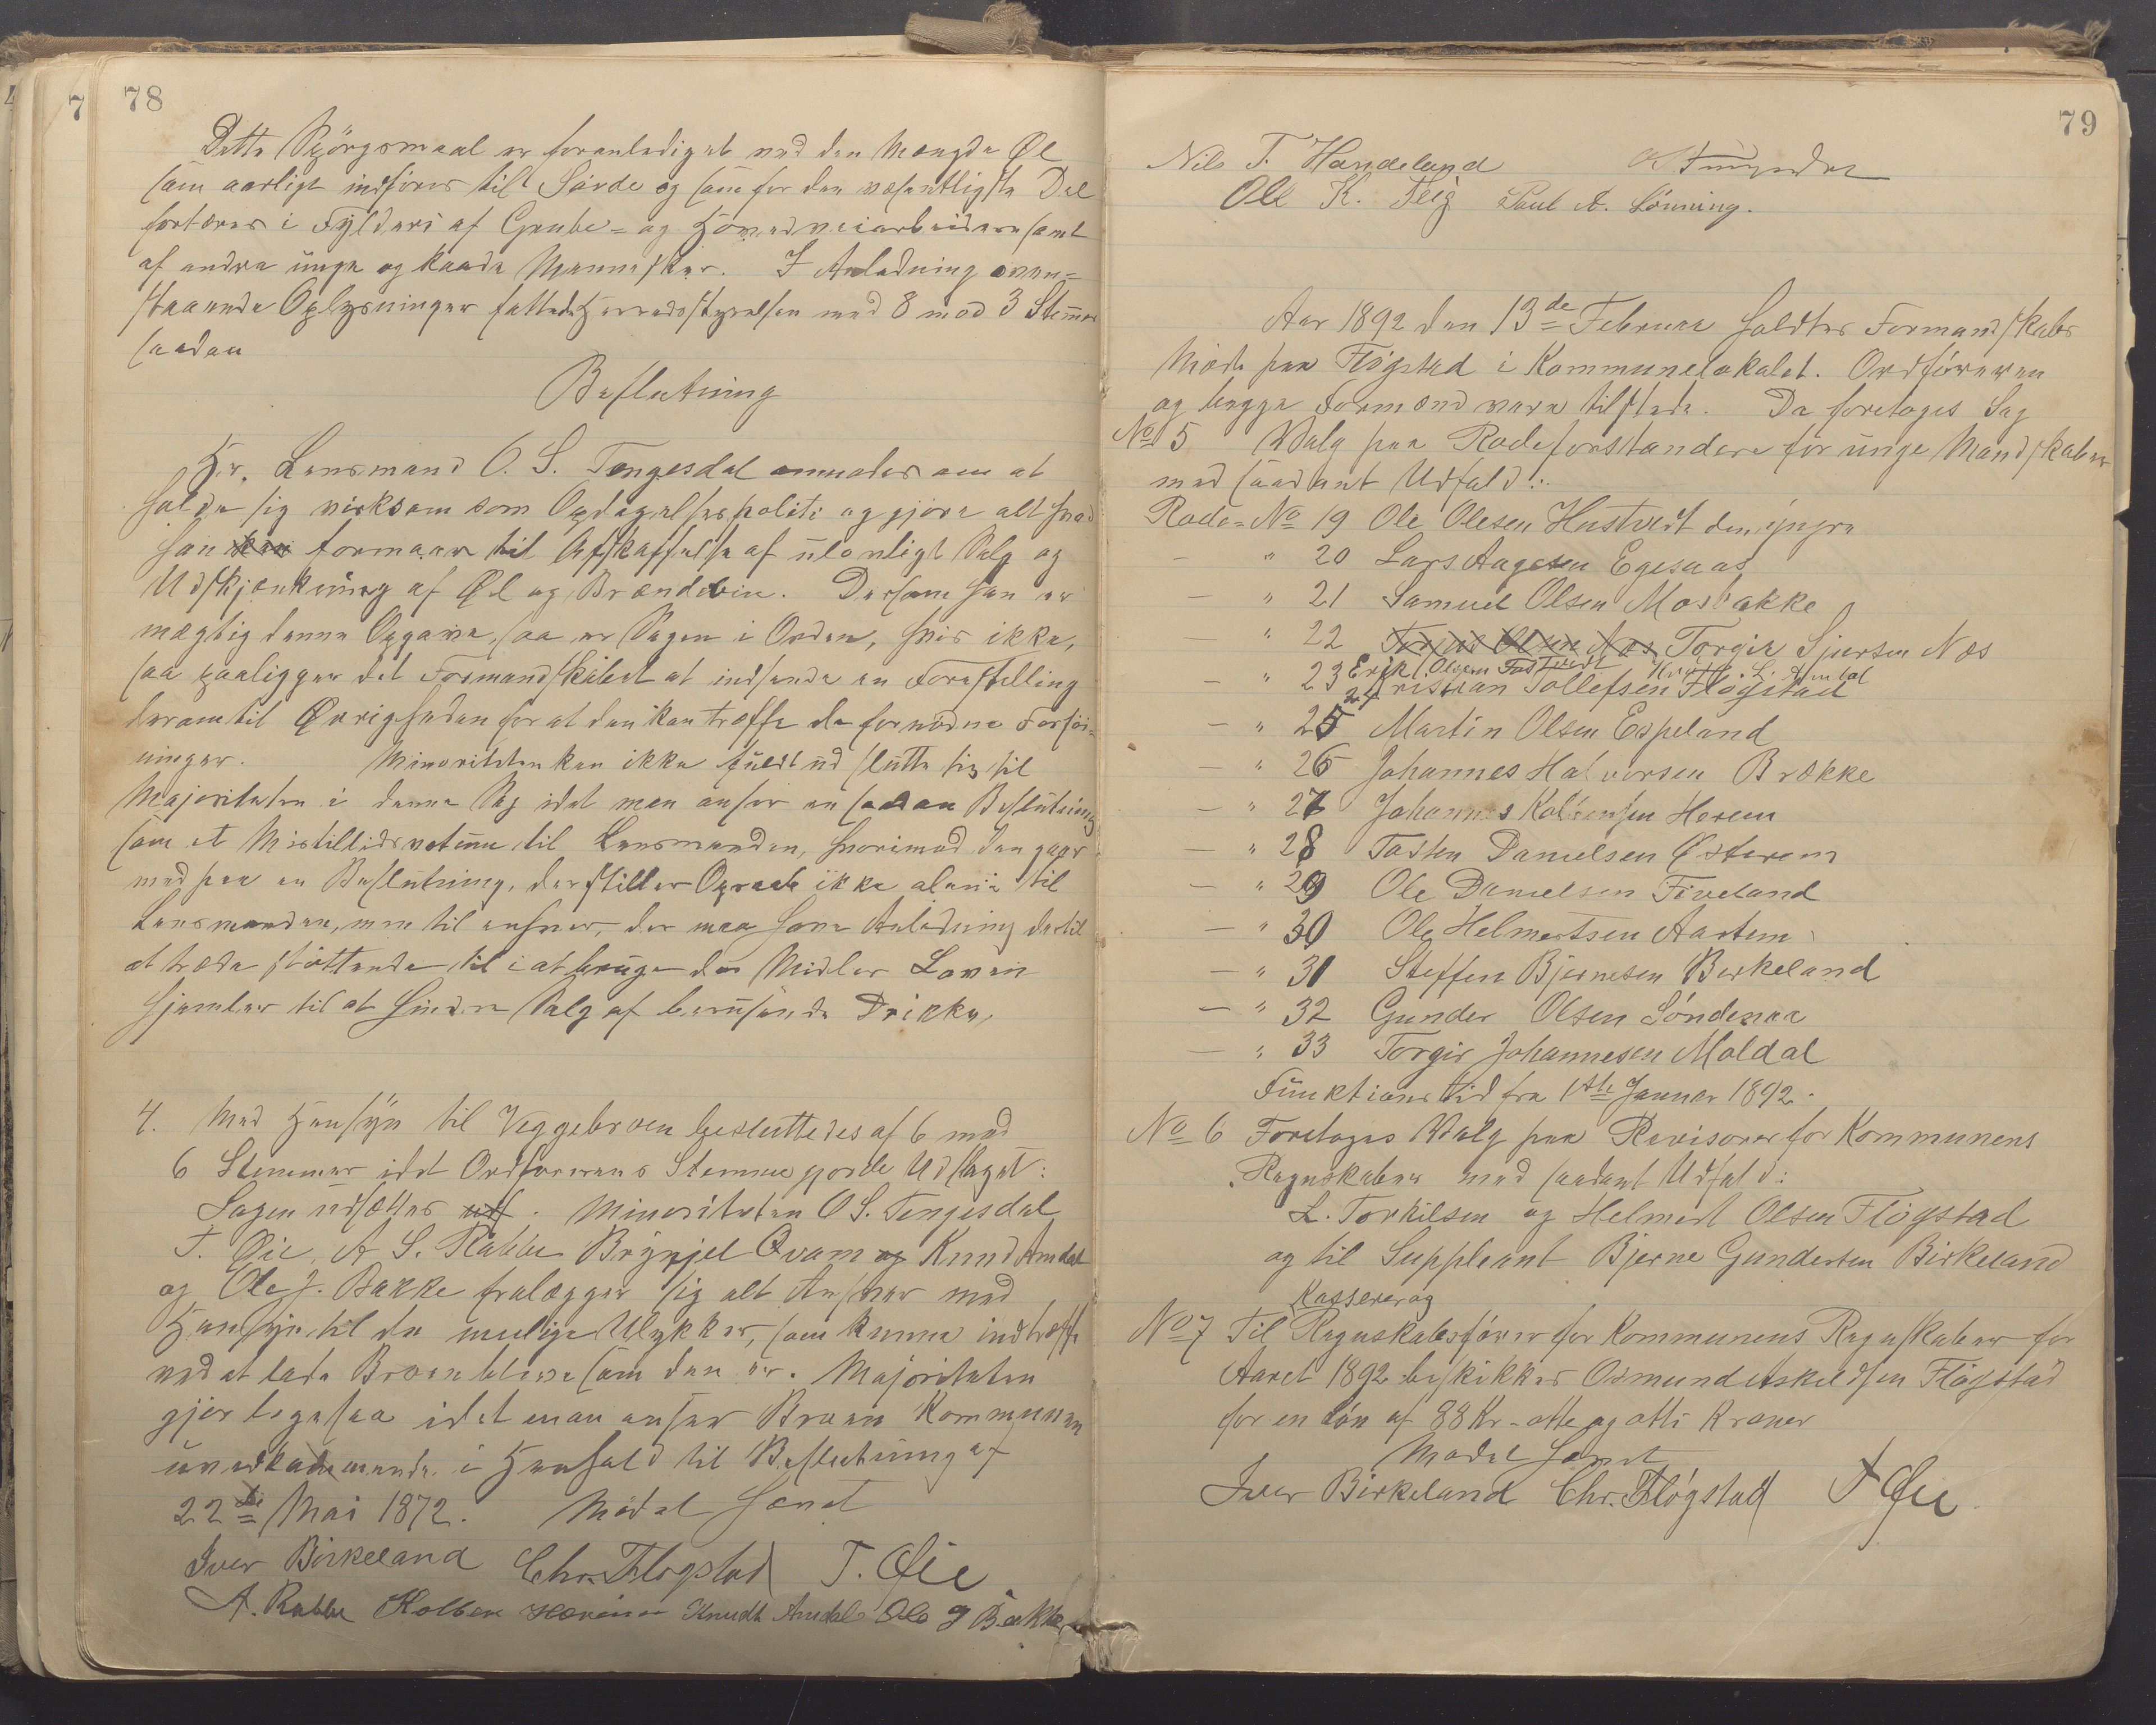 78
Dette Spörgsmaal er foranlediget ved den Mængde Øl
som aarligt indföres til Sövde og som for den væsentligste Del
fortæres i Fylderi af Grube- og Hovedveiarbeidere samt
af andre unge og kaade Mennesker. I Anledning oven-
staaende Oplysninger fattede Herredsstyrelsen med 8 mod 3 Stemmer
saadan
Beslutning
Hr. Lensmand O. S. Tengesdal anmodes om at
holde sig virksom som Opdagelsespoliti og gjöre alt hvad
han formaar til Afskaffelse af ulovligt Salg og
Udskjænkning af Øl og Brændevin. Dersom han er
mægtig denne Opgave, saa er Sagen i Orden, hvis ikke,
saa paaligger det Formandskabet at indsende en Forestilling
derom til Øvrigheden for at den kan træffe de fornödne Forföi-
ninger. Minoriteten kan ikke fuldt ud slutte sig til
Majoriteten i denne Sag idet man anser en sadan Beslutning
som et Mistillidsvotum til Lensmanden, hvorimod den gaar
med paa en Beslutning, der stiller Opraab ikke alene til
Lensmanden, men til enhver, der maa have Anledning dertil
at træde støttende til i at bruge de Midler Loven
hjemler til at hindre Salg af berusende Drikke,
4. Med Hensyn til Veggebroen besluttedes af 6 mod
6 Stemmer idet Ordförerens Stemme gjorde Udslaget:
Sagen udsættes. Minoriteten O S. Tengesdal
T. Øie, A S. Rabbe Brynjel Qvam og Knud Amdal
og Ole J. Bakke fralægger sig alt Ansvar med
Hensyn til de mulige Ulykker, som kunne indtræffe
ved at lade Broen blive som den er. Majoriteten
gjör ligesaa idet man anser Broen Kommunen
uvedkommende i Henhold til Beslutning af
22de Mai 1872. Mødet hævet
Iver Birkeland Chr. Flögstad T. Øie
A. Rabbe Kolben Horeim Knudt Amdal Ole J Bakke
79
Nils T. Handeland
Ole K. Teig Paul A. Lönning.
Aar 1892 den 13de Februar holdtes Formandskabs
Möde paa Flögstad i Kommunelokalet. Ordföreren
og begge Formænd vare tilstede. Da foretoges Sag
No 5 Valg paa Rodeforstandere for unge Mandskaber
med saadant Udfald:
Rode-No 19 Ole Olesen Hustvedt den yngre
— " 20 Lars Aagesen Egesaas
— " 21 Samuel Olsen Mosbakke
— " 22 Torgir Sjursen Næs
Erik Olsen Tostvedt Knut L. Amdal
— " 23 24 Kristian Tollefsen Flögstad
— " 25 Martin Olsen Espeland
— " 26 Johannes Halvorsen Brække
— " 27 Johannes Kolbensen Horeim
— " 28 Tosten Danielsen Østerem
— " 29 Ole Danielsen Fiveland
— " 30 Ole Helmertsen Aartem
— " 31 Steffen Bjernesen Berkeland
— " 32 Gunder Olsen Söndenaa
— " 33 Torgir Johannesen Moldal
Funktionstid fra 1ste Januar 1892.
No 6 Foretoges Valg paa Revisorer for Kommunens
Regnskaber med saadant Udfald:
L. Torkilsen og Helmert Olsen Flögstad
og til Suppleant Bjerne Gundersen Birkeland
Kasserer og
No 7 Til Regnskabsförer for Kommunens Regnskaber for
Aaret 1892 beskikkes Osmund Askeldsen Flögstad
for en Lön af 88 Kr - otte og otti Kroner
Mödet hævet
Iver Birkeland Chr. Flögstad T Øie